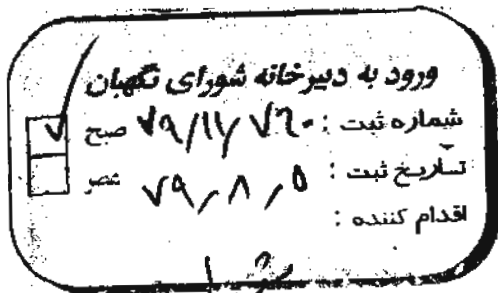 ورود به دبیرخانه شورای نگهبان
شماره ثبت : ۷۹/۱۱/۷۶۰ صبح
تاریخ ثبت : ۷۹/۸/۵ عصر
اقدام کننده :